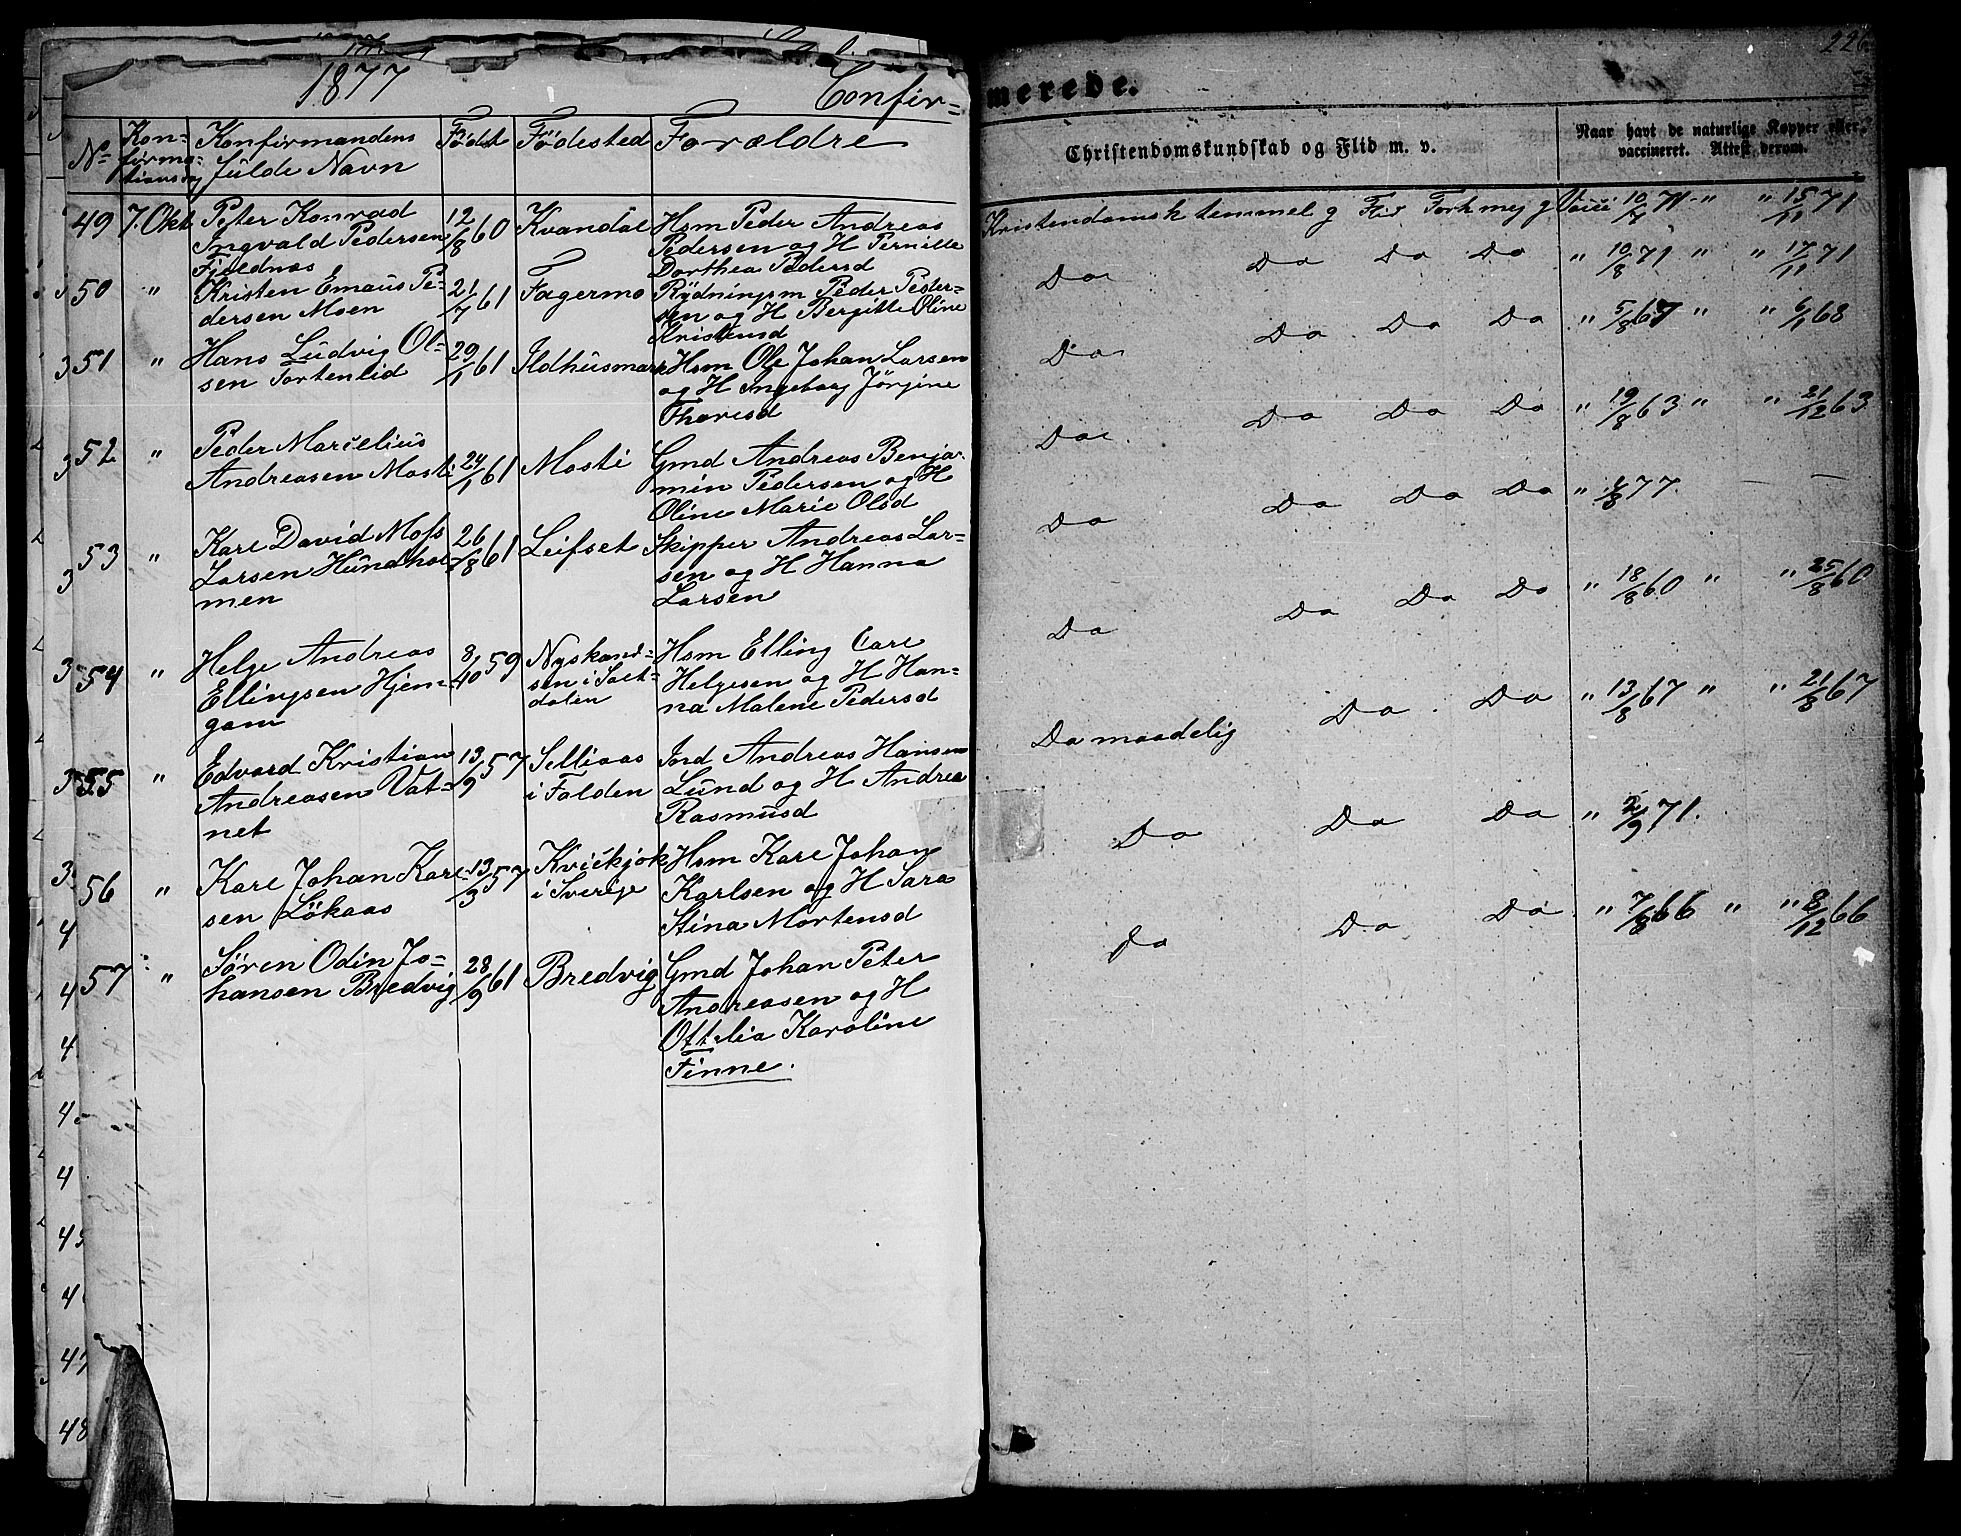 1877
Confir-
merede.
226
No
Kon-
firma-
tionsdag
Konfirmandens
fulde Navn
Födt
Födested
Forældre
Christendomskundskab og Flid m. v.
Naar havt de naturlige Kopper eller
vaccineret. Attest derom.
49 7. Okt Peter Konrad 12/8 60 Kvandal Hsm Peder Andreas
Ingvald Pedersen Pedersen og H Pernille
Fjeldnæs Dorthea Pedersd
Kristendomsk temmel g Flid Forh meg g Vacci 10/7 71 " " 15/11 71
50 " Kristen Emaus Pe- 21/7 61 Fagermo Rydningsm Peder Peder-
dersen Moen sen og H Bergitte Oline
Kristensd
Do Do Do Do " 10/8 71 " " 17/11 71
51 " Hans Ludvig Ol- 29/1 61 Ildhusmark Hsm Ole Johan Larsen
sen Tortenlid og H Ingeborg Jörgine
Tharesd
Do Do Do Do " 5/8 67 " " 6/1 68
52 " Peder Marcelius
Andreasen Mosti 24/1 61 Mosti Gmd Andreas Benja-
min Pedersen og H
Oline Marie Olsd
Do Do Do Do " 19/8 63 " " 21/12 63
53 " Karl David Moss 26/8 61 Leifset Skipper Andreas Lar-
Larsen Hundhol- sen og H Hanna
men Larsen
Do Do Do Do " 4/8 77. — —
54 " Helge Andreas 8/10 59 Nyskand- Hsm Elling Carl
Ellingsen Hjem- sen i Salt- Helgesen og H Han-
gam dalen na Malene Pedersd
Do Do Do Do " 18/8 60 " " 25/8 60
55 " Edvard Kristian 13/9 57 Selliaas Ind Andreas Hansen
Andreasen Vat- i Folden Lund og H Andrea
net Rasmusd
Do maadelig Do Do " 13/8 67 " " 21/8 67
56 " Karl Johan Karl- 13/3 57 Kvickjok Hsm Karl Johan
sen Lökaas i Sverige Karlsen og H Sara
Stina Mortensd
Do Do Do " 2/9 71.
57 " Søren Odin Jo- 28/9 61 Bredvig Gmd Johan Peter
hansen Bredvig Andreasen og H
Ottelia Karoline
Finne.
Do Do Do " 7/8 66 " " 8/12 66
48